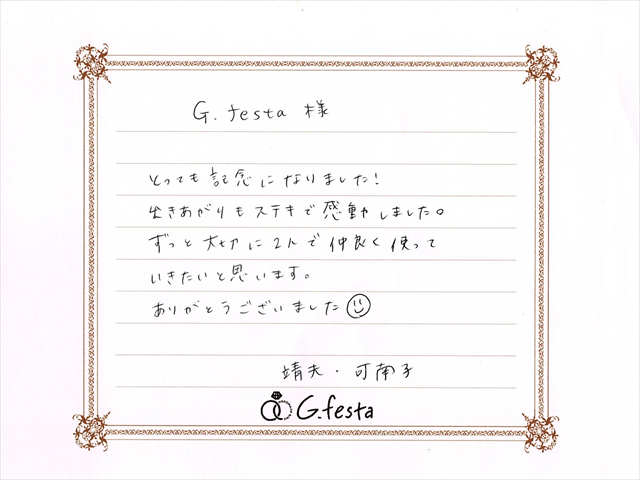 G.festa 様
とっても記念になりました!
出きあがりもステキで感動しました。
ずっと大切に2人で仲良く使って
いきたいと思います。
ありがとうございました
靖夫・可南子
G.festa